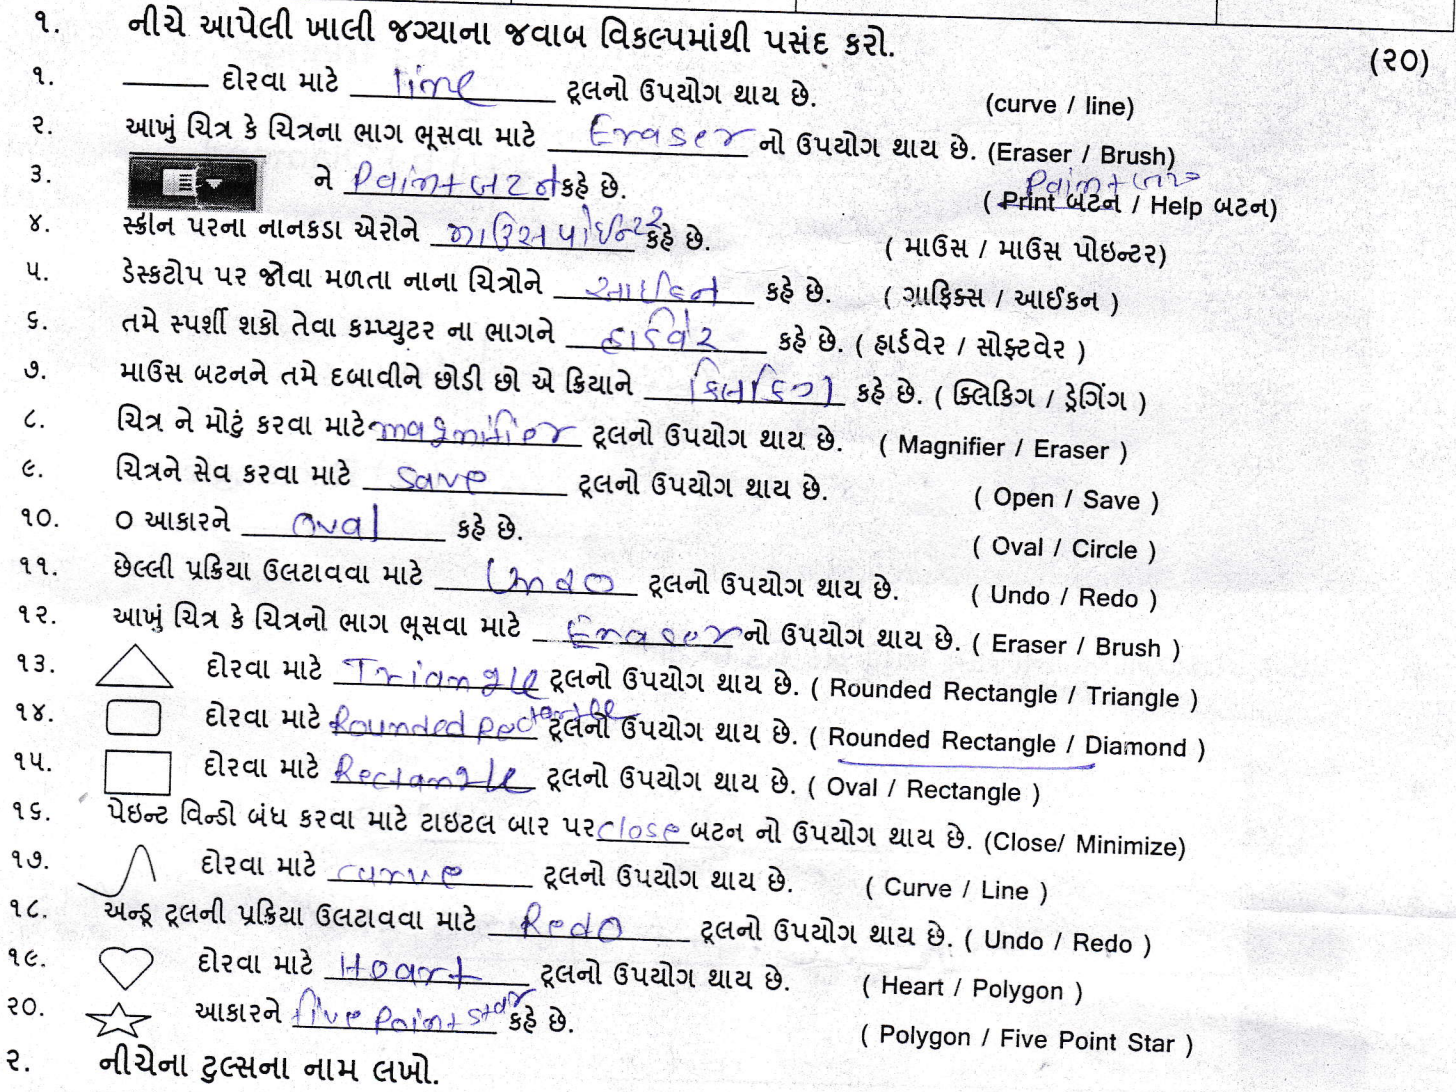 ૧. નીચે આપેલી ખાલી જગ્યાના જવાબ વિકલ્પમાંથી પસંદ કરો. (૨૦)
૧. ____ દોરવા માટે line ટૂલનો ઉપયોગ થાય છે. (curve / line)
૨. આખું ચિત્ર કે ચિત્રના ભાગ ભૂસવા માટે Eraser નો ઉપયોગ થાય છે. (Eraser / Brush)
૩. ને Paint બટન કહે છે. (Print બટન / Help બટન) Paint
૪. સ્ક્રીન પરના નાનકડા એરોને માઉસ પોઈન્ટર કહે છે. ( માઉસ / માઉસ પોઇન્ટર)
૫. ડેસ્કટોપ પર જોવા મળતા નાના ચિત્રોને આઈકન કહે છે. ( ગ્રાફિક્સ / આઈકન )
૬. તમે સ્પર્શી શકો તેવા કમ્પ્યુટર ના ભાગને હાર્ડવેર કહે છે. ( હાર્ડવેર / સોફ્ટવેર )
૭. માઉસ બટનને તમે દબાવીને છોડી છો એ ક્રિયાને ક્લિકિંગ કહે છે. ( ક્લિકિગ / ડ્રેગિંગ )
૮. ચિત્ર ને મોટું કરવા માટે magnifier ટૂલનો ઉપયોગ થાય છે. ( Magnifier / Eraser )
૯. ચિત્રને સેવ કરવા માટે save ટૂલનો ઉપયોગ થાય છે. ( Open / Save )
૧૦. O આકારને oval કહે છે. ( Oval / Circle )
૧૧. છેલ્લી પ્રક્રિયા ઉલટાવવા માટે Undo ટૂલનો ઉપયોગ થાય છે. ( Undo / Redo )
૧૨. આખું ચિત્ર કે ચિત્રનો ભાગ ભૂસવા માટે Eraser નો ઉપયોગ થાય છે. ( Eraser / Brush )
૧૩. દોરવા માટે Triangle ટૂલનો ઉપયોગ થાય છે. ( Rounded Rectangle / Triangle )
૧૪. દોરવા માટે Rounded Rectangle ટૂલનો ઉપયોગ થાય છે. ( Rounded Rectangle / Diamond )
૧૫. દોરવા માટે Rectangle ટૂલનો ઉપયોગ થાય છે. ( Oval / Rectangle )
૧૬. પેઇન્ટ વિન્ડો બંધ કરવા માટે ટાઇટલ બાર પર close બટન નો ઉપયોગ થાય છે. (Close/ Minimize)
૧૭. દોરવા માટે curve ટૂલનો ઉપયોગ થાય છે. ( Curve / Line )
૧૮. અન્ડૂ ટૂલની પ્રક્રિયા ઉલટાવવા માટે Redo ટૂલનો ઉપયોગ થાય છે. ( Undo / Redo )
૧૯. દોરવા માટે Heart ટૂલનો ઉપયોગ થાય છે. ( Heart / Polygon )
૨૦. આકારને five point star કહે છે. ( Polygon / Five Point Star )
૨. નીચેના ટુલ્સના નામ લખો.